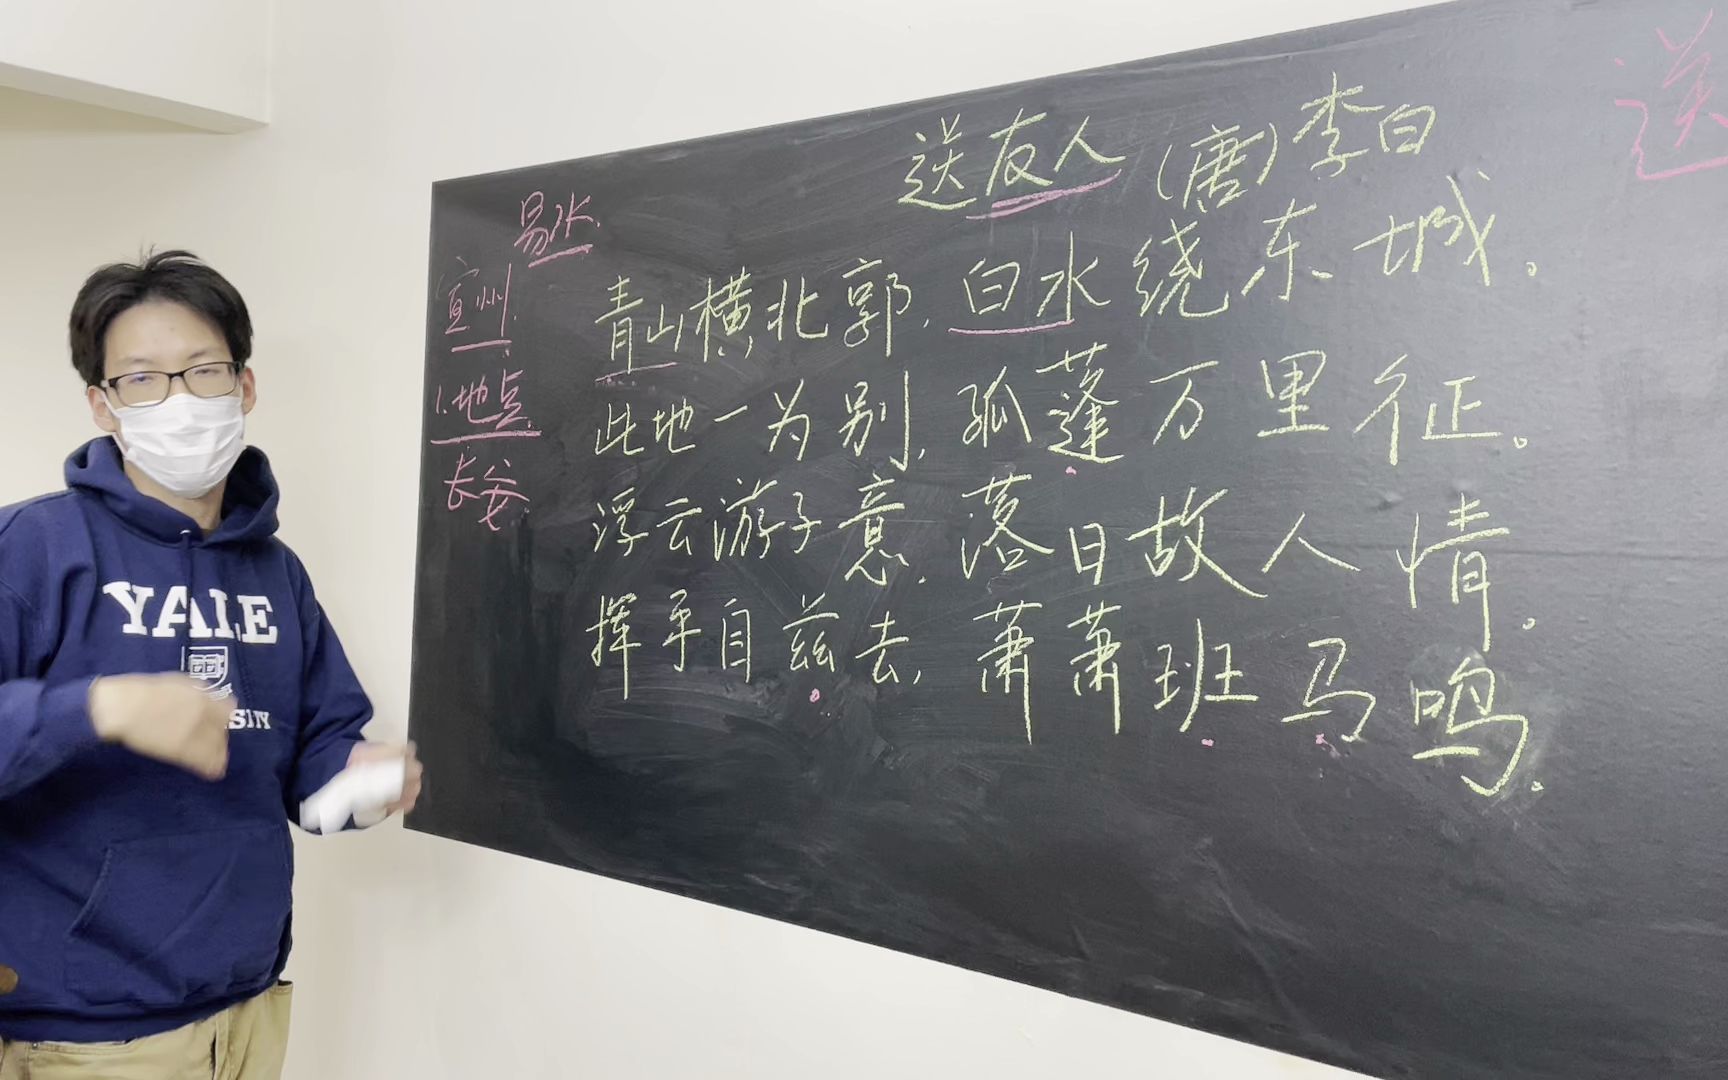 送友人(唐)李白
青山横北郭,白水绕东城。
此地一为别,孤蓬万里征。
浮云游子意,落日故人情。
挥手自兹去,萧萧班马鸣。
易水.
宣州.
1.地点
长安.
送
YALE